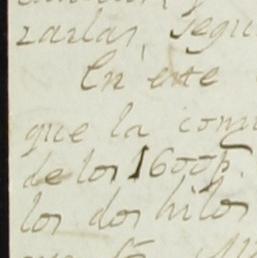 zarlas, segu
En este
que la com
de los 1600p.
los dos hilos